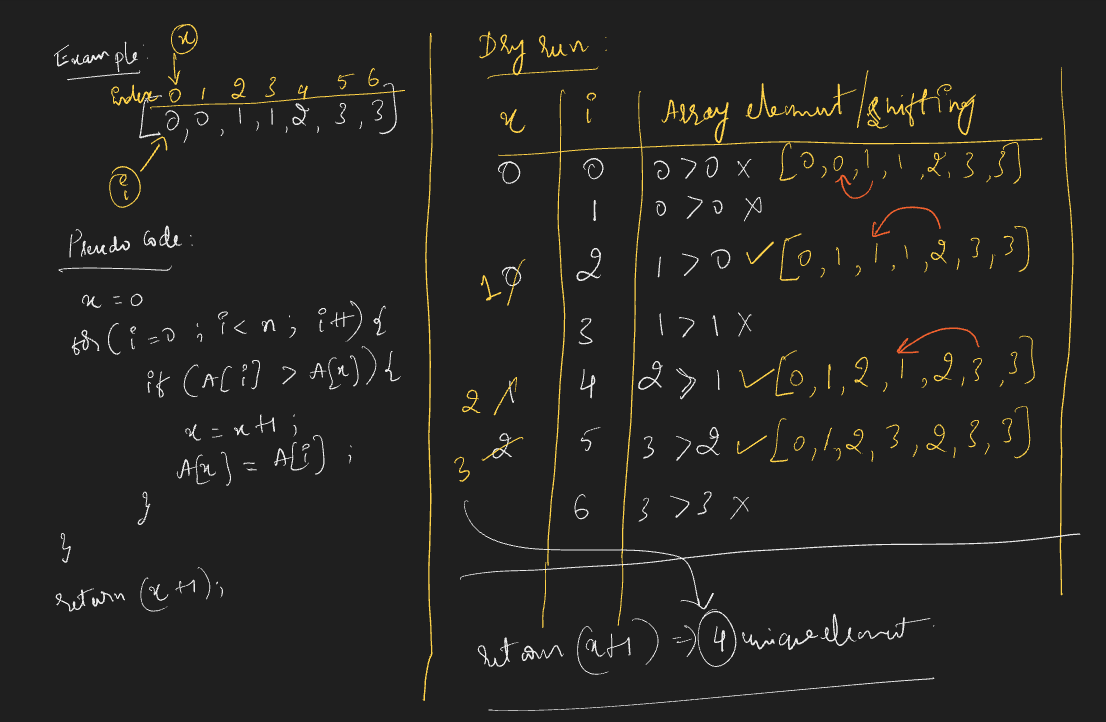 Example:
x
Index 0 1 2 3 4 5 6
[0,0,1,1,2,3,3]
i
Pseudo Code:
x=0
for(i=0; i<n; i++){
if (A[i] > A[x]){
x=x+1;
A[x] = A[i];
}
}
return (x+1);
Dry run:
x i Array element/shifting
0 0 0>0 × [0,0,1,1,2,3,3]
1 0>0 ×
1 0 2 1>0 ✓ [0,1,1,1,2,3,3]
3 1>1 ×
2 1 4 2>1 ✓ [0,1,2,1,2,3,3]
3 2 5 3>2 ✓ [0,1,2,3,2,3,3]
6 3>3 ×
return (x+1) => 4 unique element.